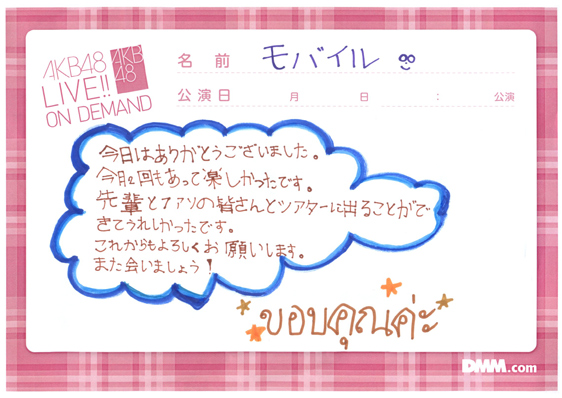 AKB48
LIVE!!
ON DEMAND
AKB
48
名前 モバイル
公演日 月 日 : 公演
今日はありがとうございました。
今月2回もあって楽しかったです。
先輩とファンの皆さんとシアターに出ることがで
きてうれしかったです。
これからもよろしくお願いします。
また会いましょう!
ขอบคุณค่ะ
DMM.com